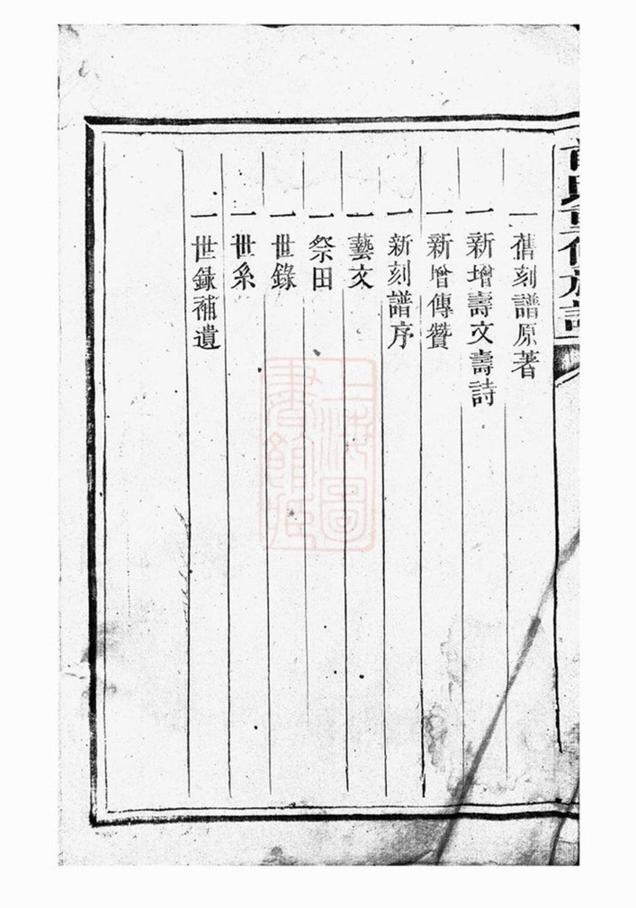 一舊刻譜原著
一新增壽文壽詩
一新增傳贊
一新刻譜序
一藝文
一祭田
一世錄
一世系
一世錄補遺
上海圖
書館藏